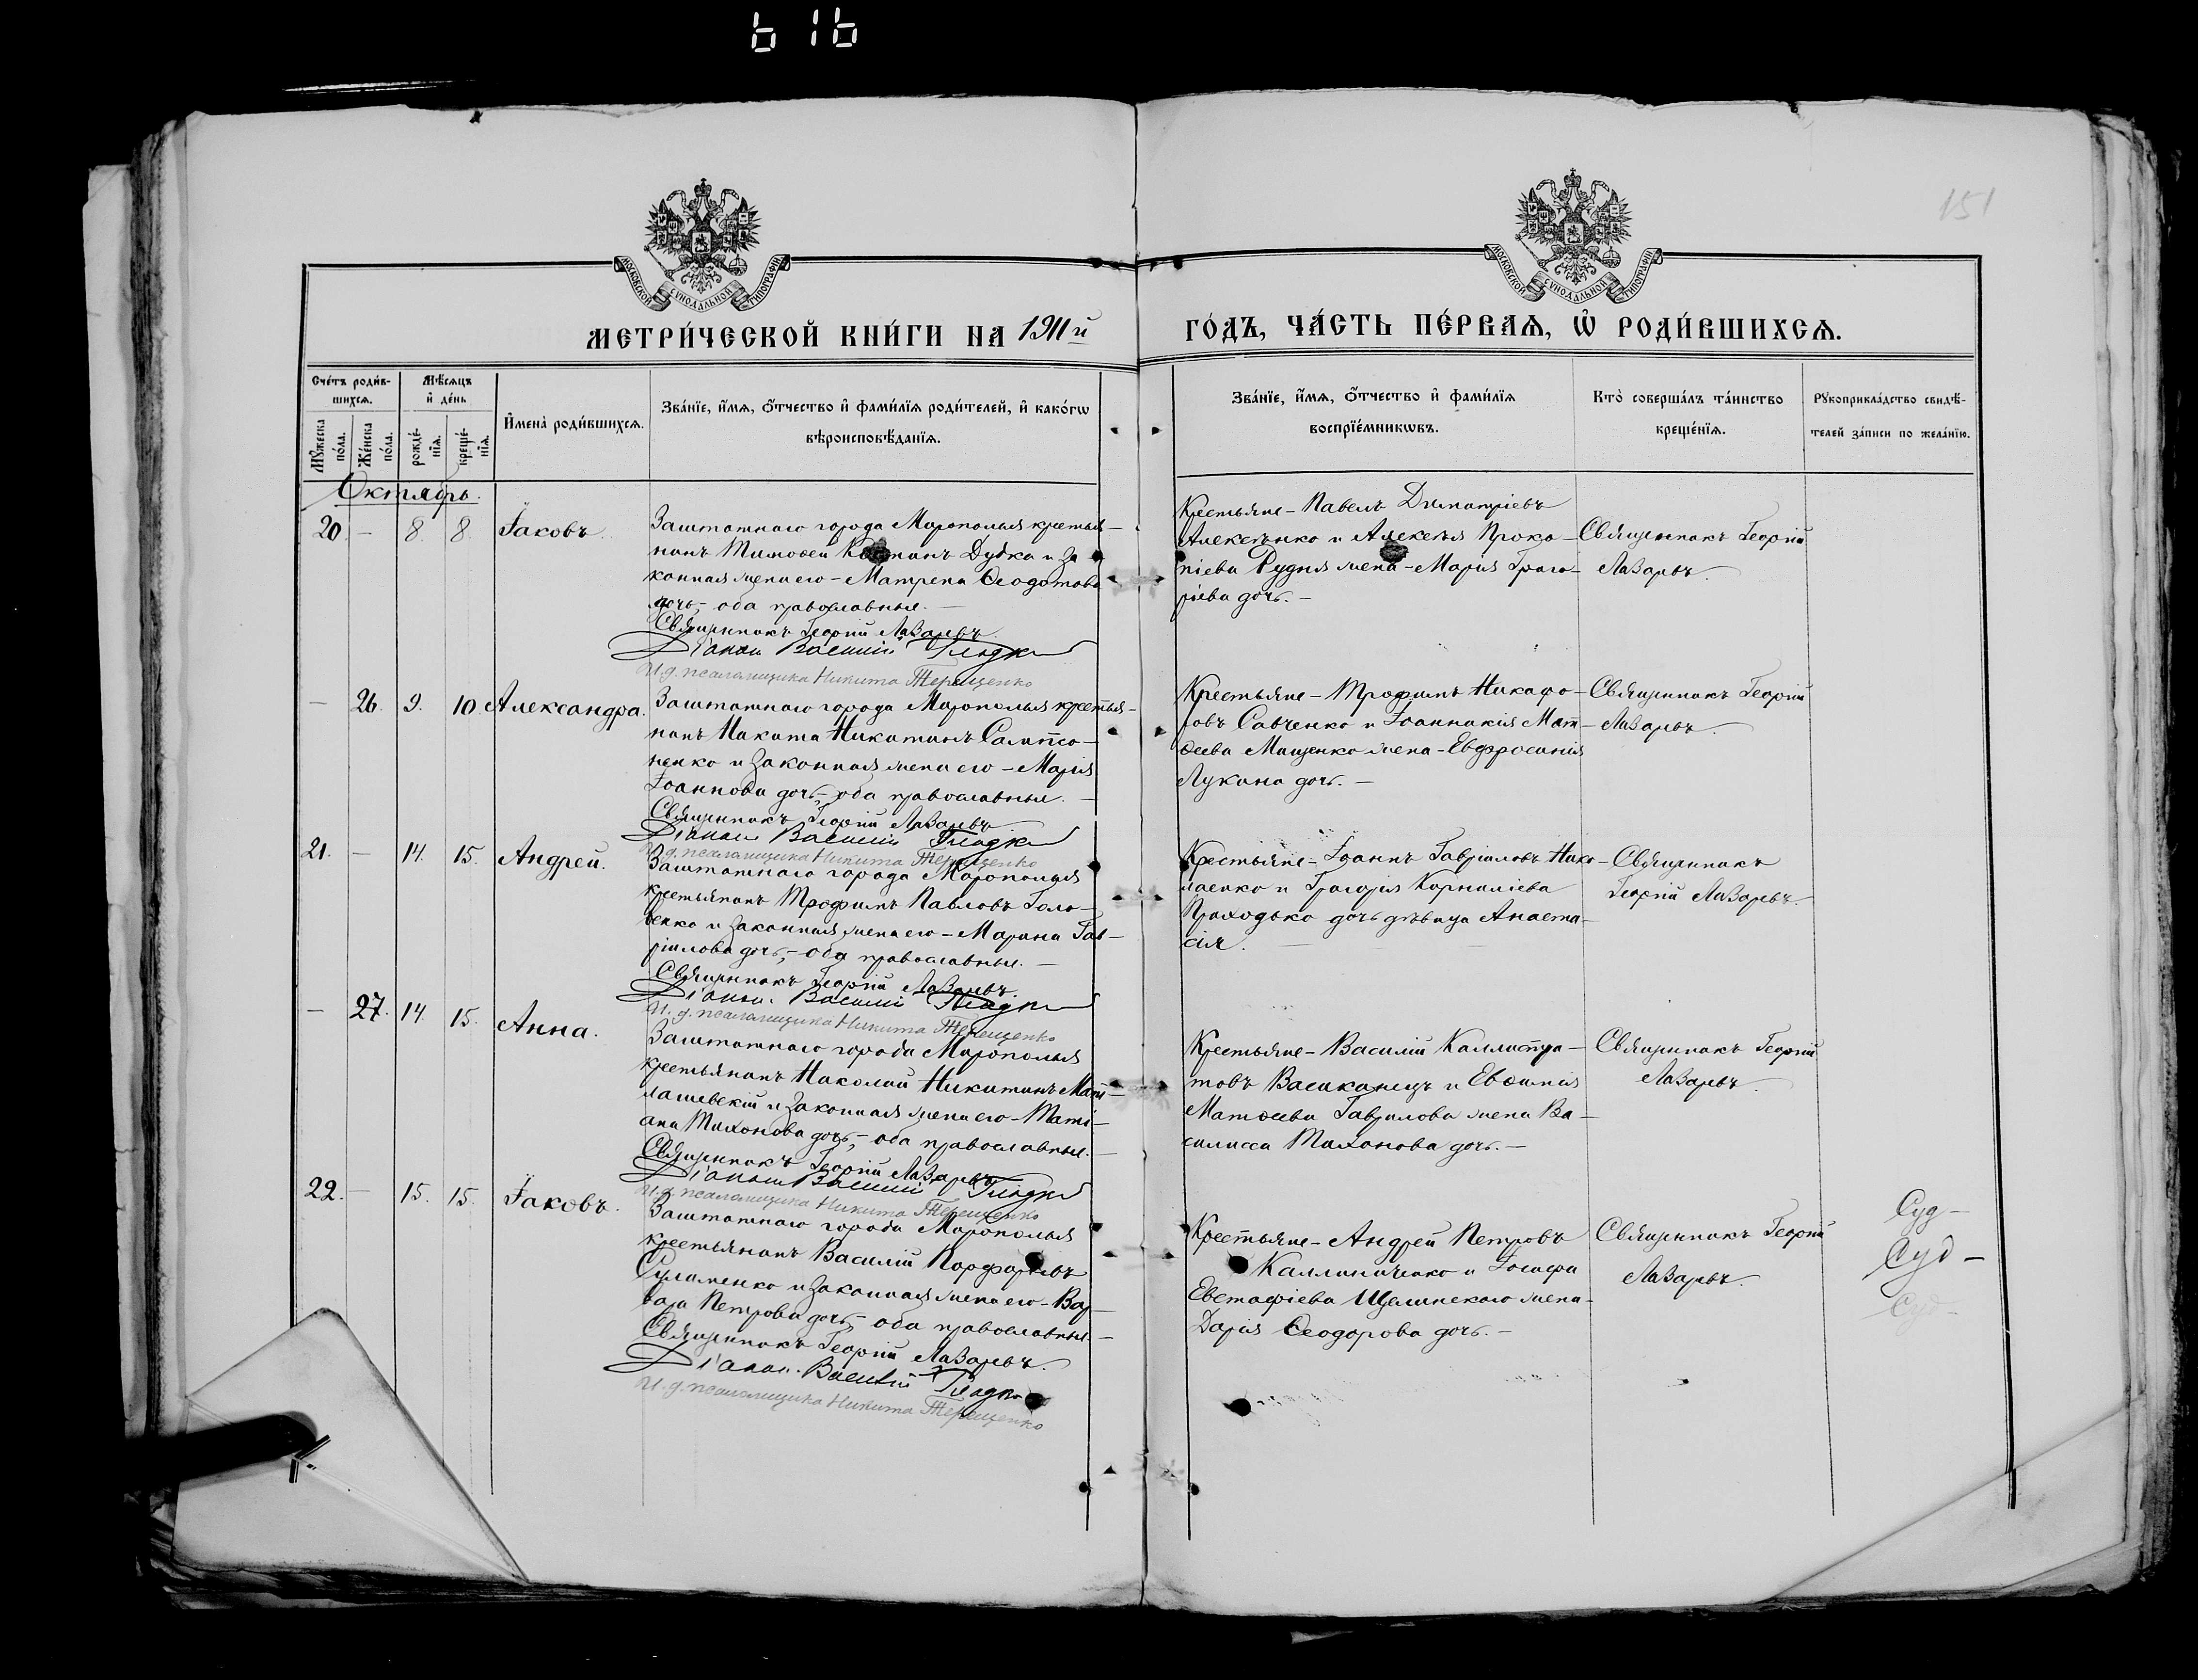 151
МОСКОВСКОЙ СѴНОДАЛЬНОЙ ТИПОГРАФІИ
МОСКОВСКОЙ СѴНОДАЛЬНОЙ ТИПОГРАФІИ
МЕТРИ́ЧЕСКОЙ КНИ́ГИ НА 1911й
ГО́ДЪ, ЧА́СТЬ ПЕ́РВАЯ, Ѡ҆ РОДИ́ВШИХСЯ.
Сче́тъ роди́в-
шихся.
Мѣ́сяцъ
и҆ де́нь
Му́жеска по́ла.
Же́нска по́ла.
рожде́-
нїя.
креще́-
нїя.
И҆мена̀ роди́вшихся.
Зва́нїе, и҆́мя, ѻ҆́тчество и҆ фами́лїя роди́телей, и҆ како́гѡ
вѣроисповѣ́данїя.
Зва́нїе, и҆́мя, ѻ҆́тчество и҆ фами́лїя
воспрїе́мникѡвъ.
Кто̀ соверша́лъ та́инство
креще́нїя.
Рꙋкоприкла́дство свидѣ́-
телей за́писи по жела́нїю.
Октябрь.
20. — 8. 8. Іаковъ.
Заштатнаго города Мирополья крестья-
нинъ Тимоѳей Дудка и за
конная жена его – Матрена Ѳеодотова
дочь, – оба православные. —
Священникъ Георгій Лазаревъ
Діаконъ Василій Гладкій
И. д. псаломщика Никита Терещенко
Крестьяне – Павелъ Димитріевъ
Алексѣнко и Алексѣя Проко-
піева Рудня жена – Марія Григо-
ріева дочь. –
Священникъ Георгій
Лазаревъ.
— 26. 9. 10 Александра.
Заштатнаго города Мирополья крестья-
нинъ Никита Никитинъ Сампсо-
ненко и законная жена его – Марія
Іоаннова дочь, – оба православные. —
Священникъ Георгій Лазаревъ
Діаконъ Василій Гладкій
И. д. псаломщика Никита Терещенко
Крестьяне – Трофимъ Никифо-
ровъ Савченко и Іоанникія Мат-
ѳеева Мащенко жена – Евфросинія
Лукина дочь. —
Священникъ Георгій
Лазаревъ.
21. — 14. 15. Андрей.
Заштатнаго города Мирополья
крестьянинъ Трофимъ Павловъ Голо-
венко и законная жена его – Марина Гав-
ріилова дочь, – оба православные. —
Священникъ Георгій Лазаревъ.
Діаконъ Василій Гладкій
И. д. псаломщика Никита Терещенко
Крестьяне – Іоаннъ Гавріиловъ Нико-
лаенко и Григорія Корниліева
Приходько дочь дѣвица Анаста-
сія.
Священникъ
Георгій Лазаревъ.
— 27. 14. 15. Анна.
Заштатнаго города Мирополья
крестьянинъ Николай Никитинъ
и законная жена его – Тати-
ана Тихонова дочь, – оба православные. —
Священникъ Георгій Лазаревъ
Діаконъ Василій Гладкій
И. д. псаломщика Никита Терещенко
Крестьяне – Василій Каллистра-
товъ и Евѳимія
Матѳеева Гаврилова жена Ва-
силисса Тихонова дочь. —
Священникъ Георгій
Лазаревъ.
22. — 15. 15. Іаковъ.
Заштатнаго города Мирополья
крестьянинъ Василій Порфирьевъ
и законная жена его – Вар-
вара Петрова дочь, – оба православные –
Священникъ Георгій Лазаревъ.
Діаконъ Василій Гладкій
И. д. псаломщика Никита Терещенко
Крестьяне – Андрей Петровъ
Каллиниченко и Іосифа
Евстафіева Щелинскаго жена –
Дарія Ѳеодорова дочь. —
Священникъ Георгій
Лазаревъ.
Суд –
Суд –
Суд –